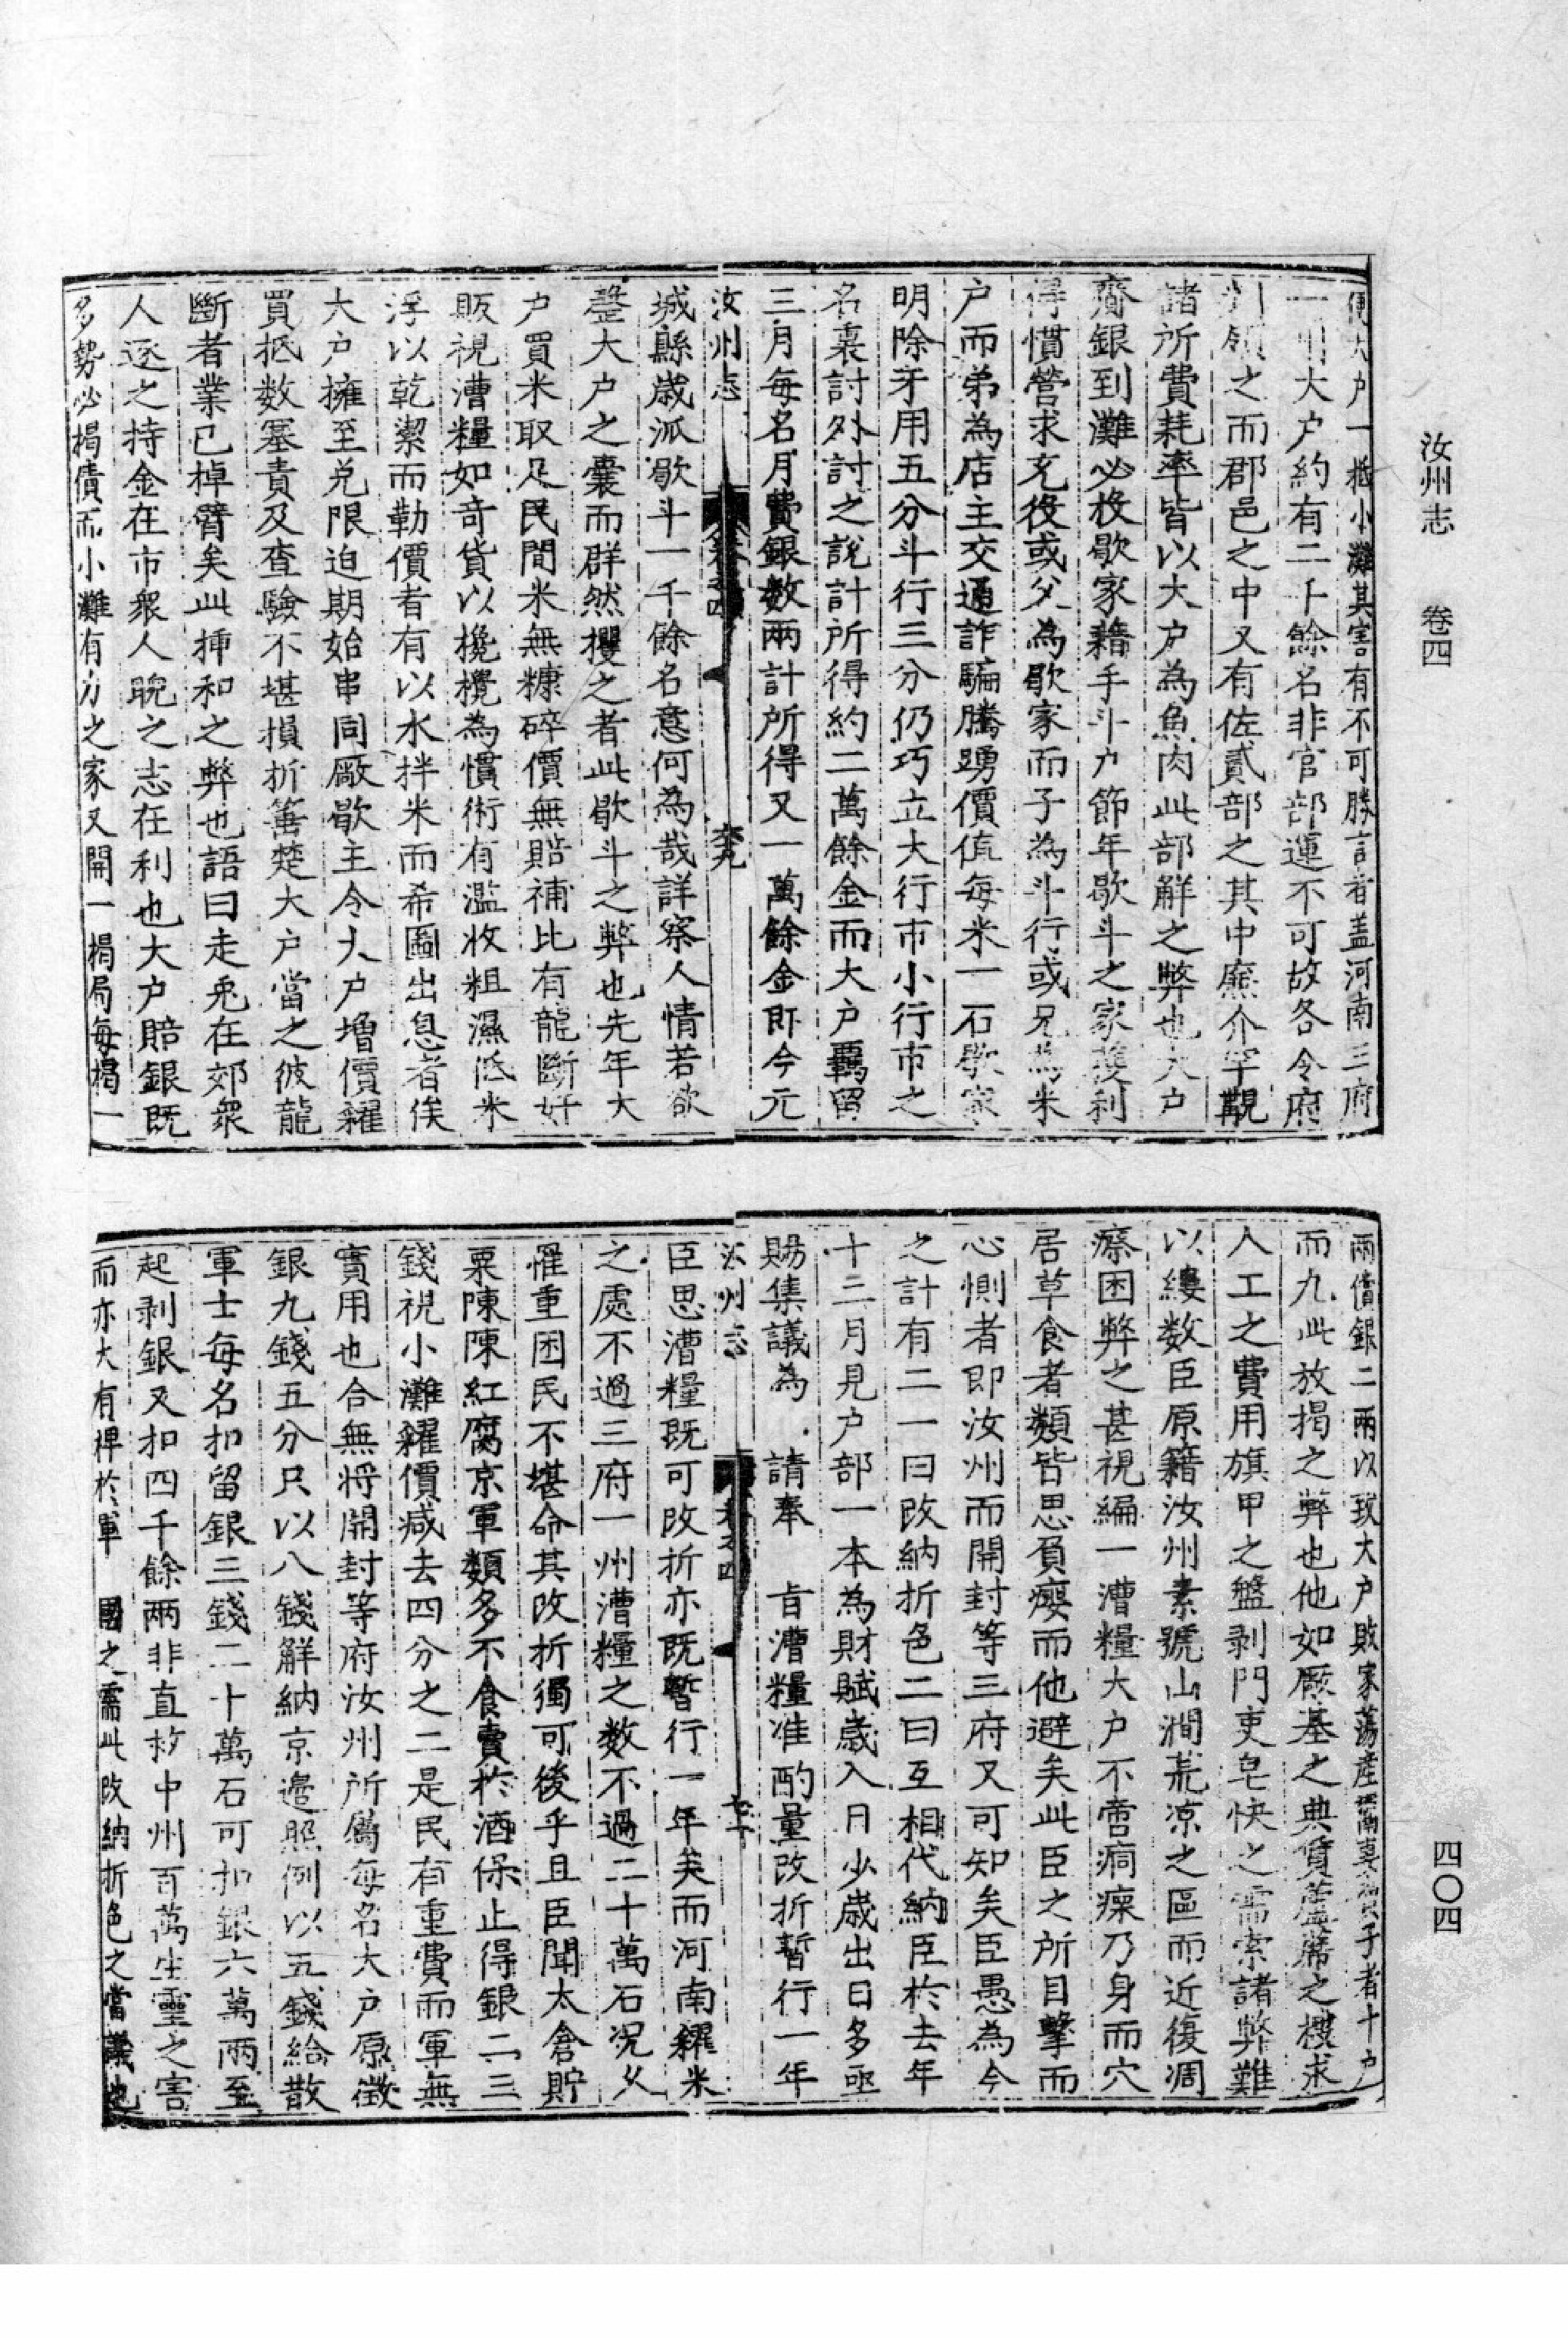 汝州志　卷四
四〇四
大户一抵小灘其害有不可勝言者盖河南三府
一州大户約有二千餘名非官部運不可故各令府
州領之而郡邑之中又有佐貳部之其中廉介罕覯
諸所費耗率皆以大户為魚肉此部解之弊也大户
齎銀到灘必投歇家藉手斗户節年歇斗之家獲利
得慣營求充役或父為歇家而子為斗行或兄為米
户而弟為店主交通詐騙騰踴價值每米一石歇家
明除牙用五分斗行三分仍巧立大行市小行市之
名裏討外討之說計所得約二萬餘金而大户羈留
三月每名月費銀数兩計所得又一萬餘金即今元
汝州志　卷之四　六九
城縣歳派歇斗一千餘名意何為哉詳察人情若欲
罄大户之囊而群然攫之者此歇斗之弊也先年大
户買米取足民間米無糠碎價無賠補比有龍斷奸
販視漕糧如奇貨以攙攪為慣術有濫收粗濕低米
浮以乾潔而勒價者有以水拌米而希圖出息者俟
大户擁至兌限迫期始串同廠歇主令大户增價糴
買抵数塞責及查驗不堪損折箠楚大户當之彼龍
斷者業已掉臂矣此挿和之弊也語曰走兎在郊衆
人逐之持金在市衆人睨之志在利也大户賠銀既
多勢必揭債而小灘有力之家又開一揭局每揭一
兩償銀二兩以致大户敗家蕩産子者十户
而九此放揭之弊也他如厫基之典賃蘆蓆之搜求
人工之費用旗甲之盤剥門吏皂快之需索諸弊難
以縷数臣原籍汝州素號山澗荒凉之區而近復凋
瘵困弊之甚視編一漕糧大户不啻痌瘝乃身而穴
居草食者類皆思負瘿而他避矣此臣之所目擊而
心惻者即汝州而開封等三府又可知矣臣愚為今
之計有二一曰改納折色二曰互相代納臣於去年
十二月見户部一本為財賦歳入日少歳出日多亟
賜集議為　請奉　旨漕糧准酌量改折暫行一年
汝州志　卷之四　七十
臣思漕糧既可改折亦既暫行一年矣而河南糴米
之處不過三府一州漕糧之数不過二十萬石况久
罹重困民不堪命其改折獨可後乎且臣聞太倉貯
粟陳陳紅腐京軍類多不食賣於酒保止得銀二三
錢視小灘糴價减去四分之二是民有重費而軍無
實用也合無將開封等府汝州所屬每名大户原徵
銀九錢五分只以八錢解納京邉照例以五錢給散
軍士每名扣留銀三錢二十萬石可扣銀六萬兩至
起剥銀又扣四千餘兩非直救中州百萬生靈之害
而亦大有裨於軍　國之需此改納折色之當議也